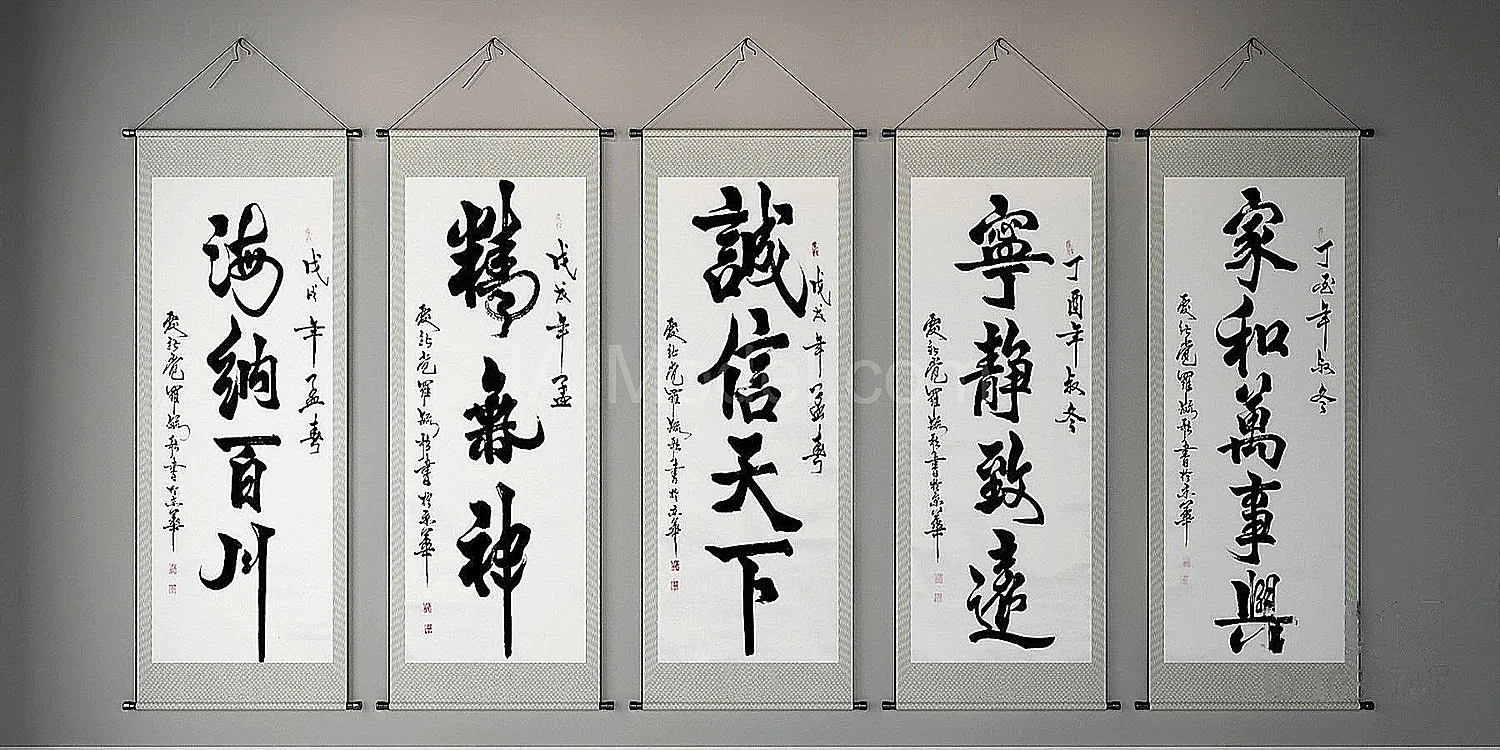 戊戌年孟春
海納百川
愛新覺羅毓書於京華
戊戌年孟
精氣神
愛新覺羅毓書於京華
戊戌年孟春
誠信天下
愛新覺羅毓書於京華
丁酉年叔冬
寧靜致遠
愛新覺羅毓書於京華
丁酉年叔冬
家和萬事興
愛新覺羅毓書於京華